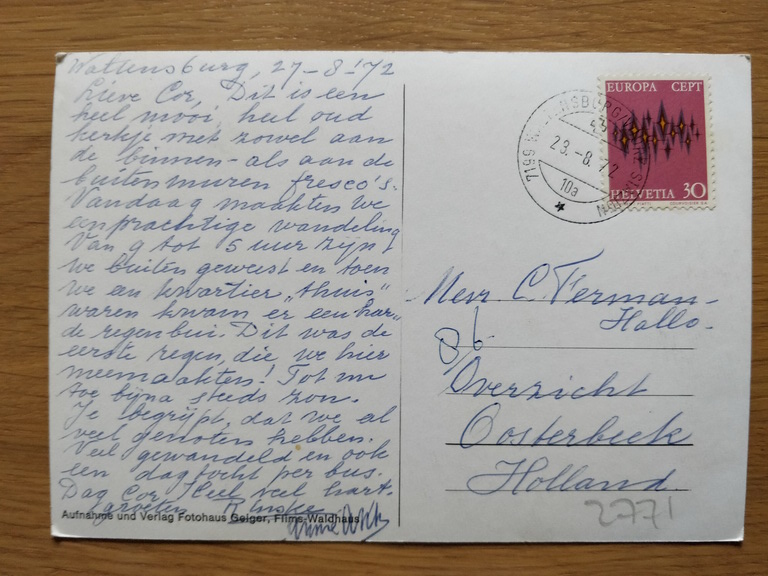 Waltensburg, 27-8-'72
Lieve Cor, Dit is een
heel mooi, heel oud
kerkje met zowel aan
de binnen- als aan de
buitenmuren fresco's.
Vandaag maakten we
een prachtige wandeling
Van 9 tot 5 uur zijn
we buiten geweest en toen
we een kwartier „thuis"
waren kwam er een har-
de regenbui. Dit was de
eerste regen, die we hier
meemaakten! Tot nu
toe bijna steds zon.
Je begrijpt, dat we al
veel genoten hebben.
Veel gewandeld en ook
een dagtocht per bus.
Dag Cor, heel veel hart.
groeten
Aufnahme und Verlag Fotohaus Geiger, Flims-Waldhaus
EUROPA CEPT
HELVETIA 30
7199 W
23.-8.72
10a
Mevr C. Terman-
Hallo.
8/6
Overzicht
Oosterbeek
Holland.
2771